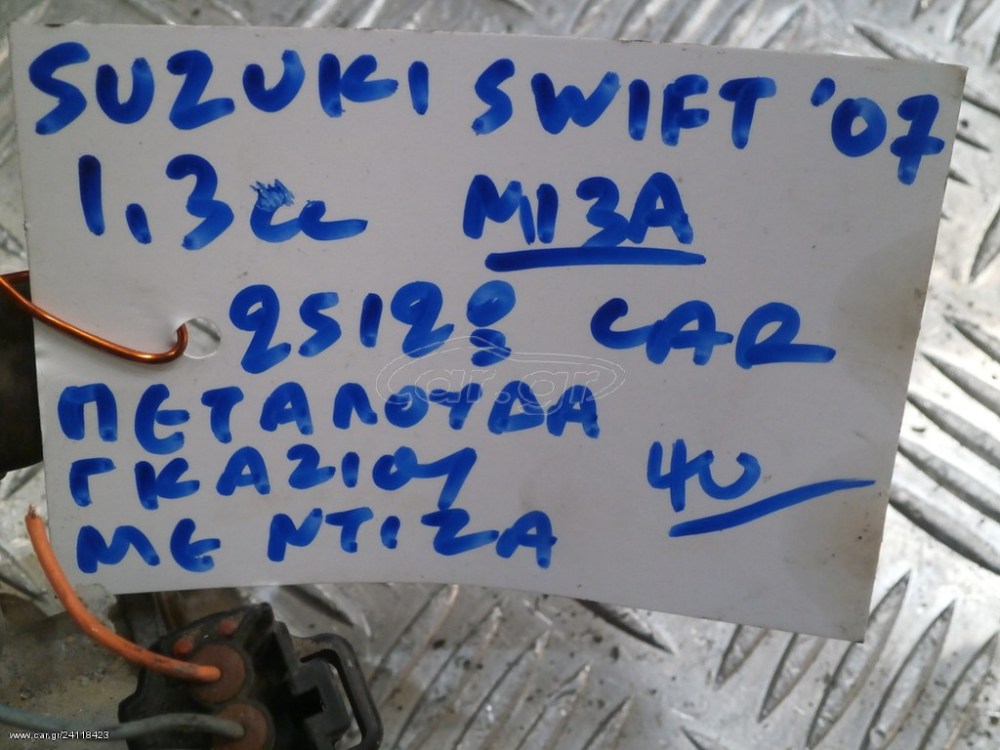 SUZUKI SWIFT '07
1,3cc ΜΙΖΑ
CAR
car.gr
ΠΕΤΑΛΟΥΔΑ
ΓΚΑΖΙΟΥ 40
ΜΕ ΝΤΙΖΑ
www.car.gr/24118423